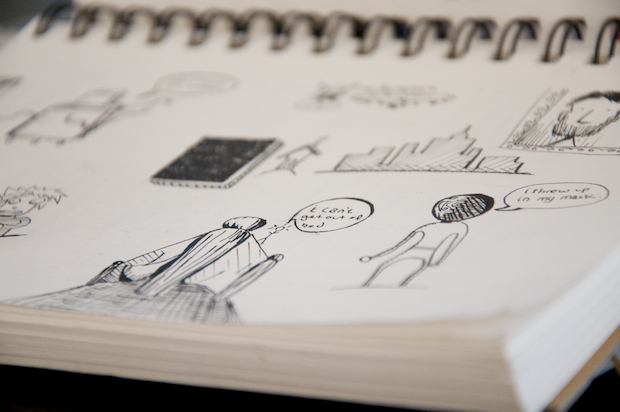 I can't
get out of
bed
i threw up
in my mask